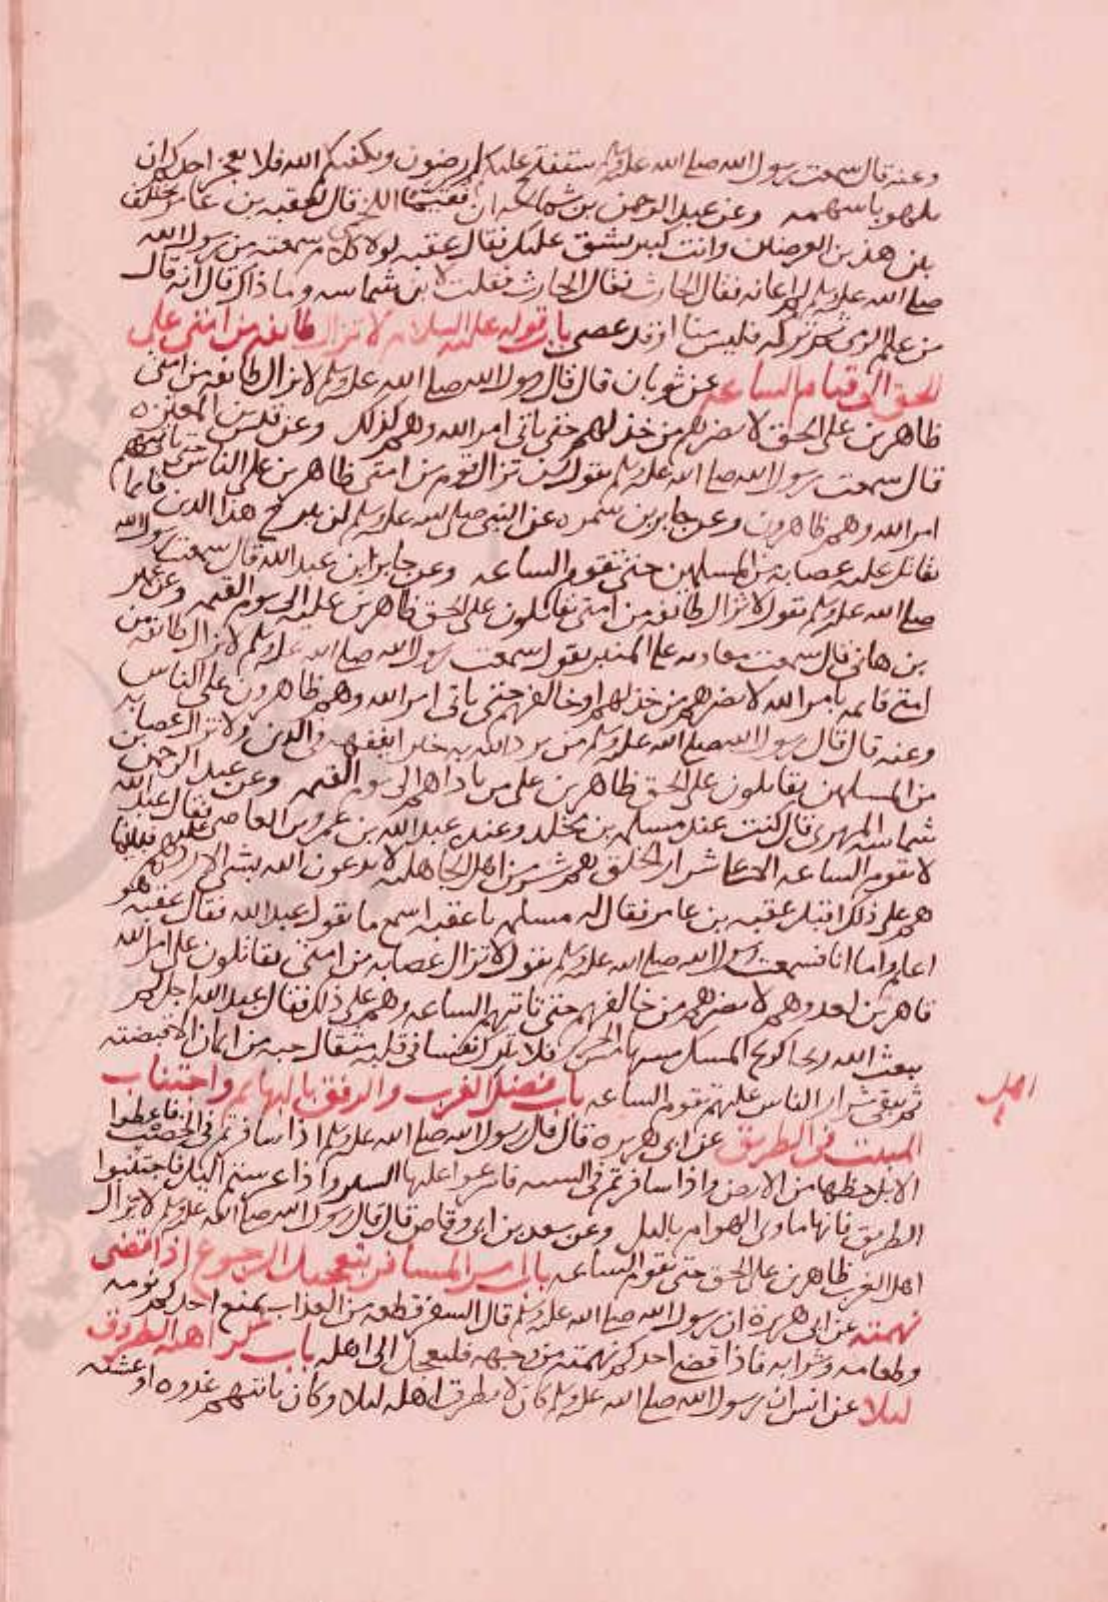 وعنه قال سمعت رسول الله صلى الله عليه وسلم ستفتح عليكم ارضون ويكفيكم الله فلا يعجز احدكم ان
يلهو باسهمه وعن عبد الرحمن بن شماسه ان فقيما اللخمي قال لعقبه بن عامر تختلف
بين هذين الغرضين وانت كبير يشق عليك فقال عقبه لولا كلام سمعته من رسول الله
صلى الله عليه وسلم لم اعانه فقال الحارث فقلت لابن شماسه وما ذاك قال انه قال
من علم الرمي ثم تركه فليس منا او قد عصى باب قوله عليه السلام لا تزال طائفه من امتي على
الحق الى قيام الساعه عن ثوبان قال قال رسول الله صلى الله عليه وسلم لا تزال طائفه من امتي
ظاهرين على الحق لا يضرهم من خذلهم حتى ياتي امر الله وهم كذلك وعن المغيره
قال سمعت رسول الله صلى الله عليه وسلم يقول لن تزال قوم من امتي ظاهرين على الناس حتى ياتيهم
امر الله وهم ظاهرون وعن جابر بن سمره عن النبي صلى الله عليه وسلم لن يبرح هذا الدين قايما
يقاتل عليه عصابه من المسلمين حتى تقوم الساعه وعن جابر ابن عبد الله قال سمعت رسول الله
صلى الله عليه وسلم يقول لا تزال طائفه من امتي يقاتلون على الحق ظاهرين الى يوم القيمه وعن عمير
بن هاني قال سمعت معاويه على المنبر يقول سمعت رسول الله صلى الله عليه وسلم لا تزال طائفه من
امتي قايمه بامر الله لا يضرهم من خذلهم او خالفهم حتى ياتي امر الله وهم ظاهرون على الناس
وعنه قال قال رسول الله صلى الله عليه وسلم من يرد الله به خيرا يفقهه في الدين ولا تزال عصابه
من المسلمين يقاتلون على الحق ظاهرين على من ناواهم الى يوم القيمه وعن عبد الرحمن بن
شماسه المهري قال كنت عند مسلمه بن مخلد وعنده عبد الله بن عمرو بن العاصي فقال عبد الله
لا تقوم الساعه الا على شرار الخلق هم شر من اهل الجاهليه لا يدعون الله بشي الا رده عليهم فبينما
هم على ذلك اقبل عقبه بن عامر فقال له مسلمه يا عقبه اسمع ما يقول عبد الله فقال عقبه هو
اعلم واما انا فسمعت رسول الله صلى الله عليه وسلم يقول لا تزال عصابه من امتي يقاتلون على امر الله
قاهرين لعدوهم لا يضرهم من خالفهم حتى تاتيهم الساعه وهم على ذلك فقال عبد الله اجل ثم
يبعث الله ريحا كريح المسك مسها الحرير فلا تترك نفسا في قلبه مثقال حبه من ايمان الا قبضته
ثم يبقى شرار الناس عليهم تقوم الساعه باب فضل الغرب والرفق بالبهايم واجتناب
اهل
المبيت في الطريق عن ابي هريره قال قال رسول الله صلى الله عليه وسلم اذا سافرتم في الخصب فاعطوا
الابل حظها من الارض واذا سافرتم في السنه فاسرعوا عليها السير واذا عرستم اليل فاجتنبوا
الطريق فانها ماوى الهوام بالليل وعن سعد بن ابي وقاص قال قال رسول الله صلى الله عليه وسلم لا تزال
اهل الغرب ظاهرين على الحق حتى تقوم الساعه باب امر المسافر بتعجيل الرجوع اذا قضى
نهمته عن ابي هريرة ان رسول الله صلى الله عليه وسلم قال السفر قطعه من العذاب يمنع احدكم نومه
وطعامه وشرابه فاذا قضى احدكم نهمته من وجهه فليعجل الى اهله باب كره اهله الطروق
ليلا عن انس ان رسول الله صلى الله عليه وسلم كان لا يطرق اهله ليلا وكان ياتيهم غدوه او عشيه